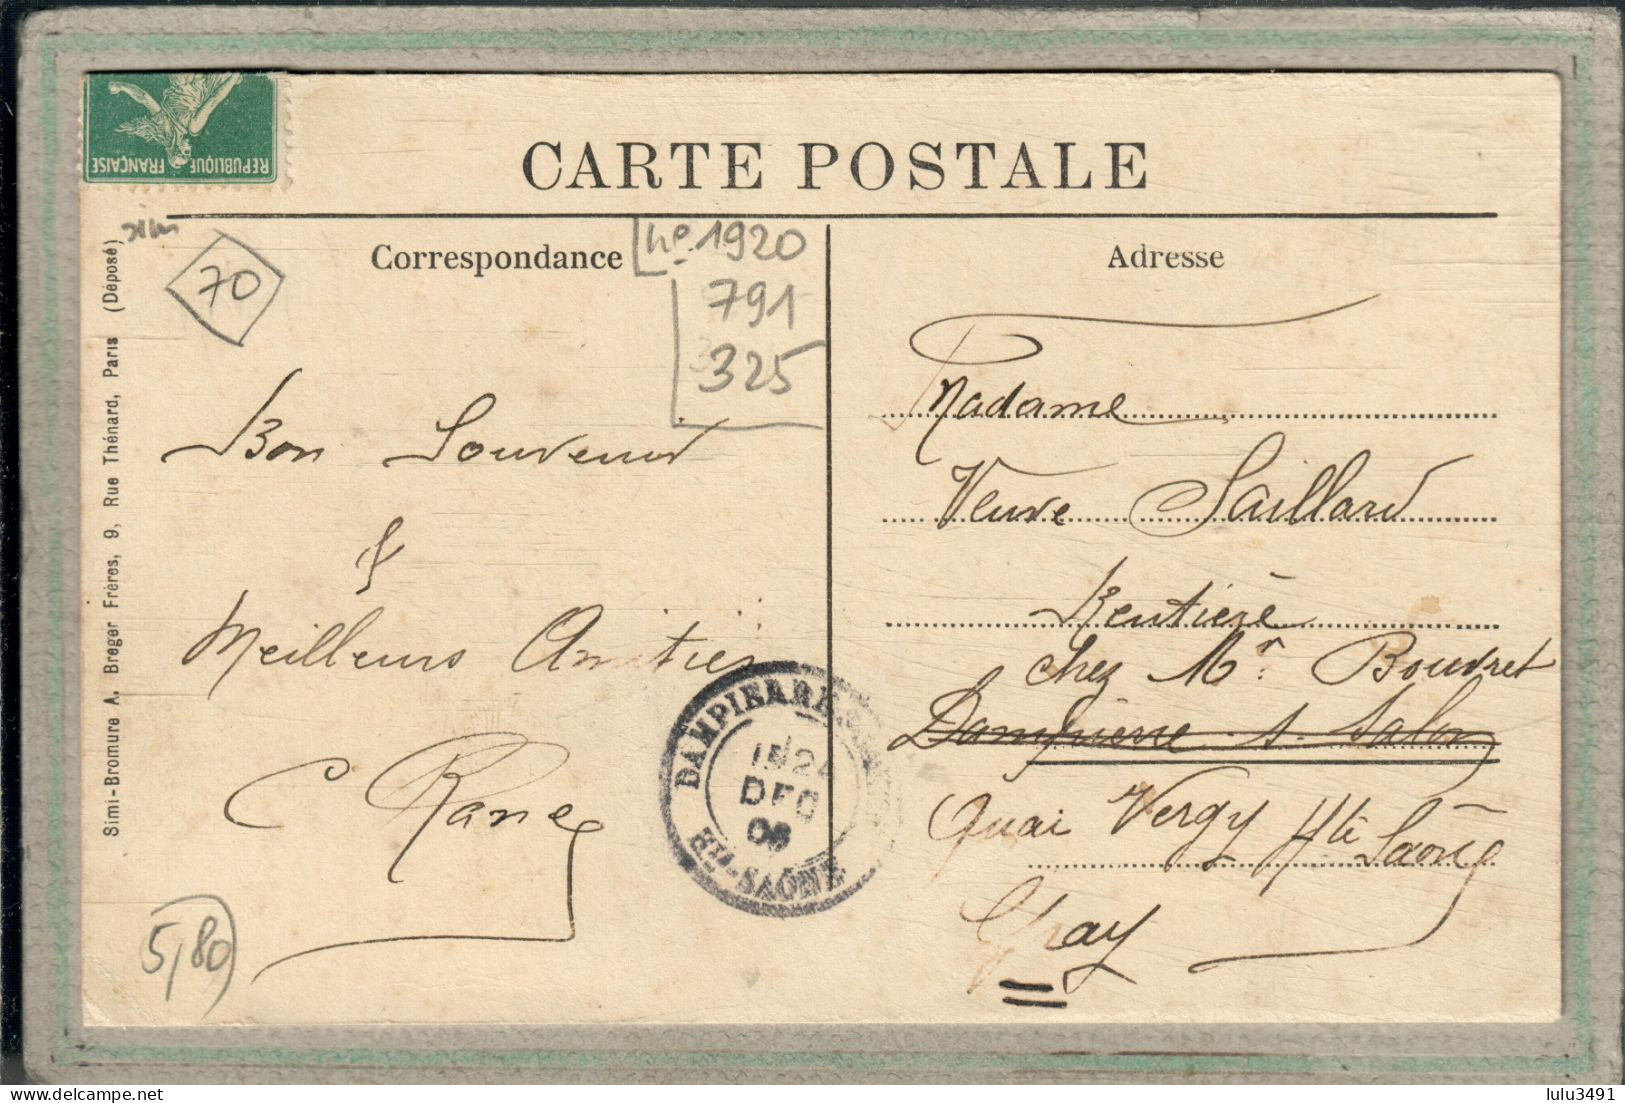 REPUBLIQUE FRANÇAISE
CARTE POSTALE
Correspondance
Adresse
70
nº 1920
791
325
Simi-Bromure A. Breger Frères, 9, Rue Thénard, Paris (Déposé)
Bon Souvenir
&
Meilleurs Amitiés
C Rane
5,80
DAMPIERRE
24
DEC
08
HTE-SAÔNE
Madame
Veuve Saillard
Rentière
chez Mr. Bouvret
Dampierre s. Salon
Quai Vergy Hte Saône
Gray
lulu3491